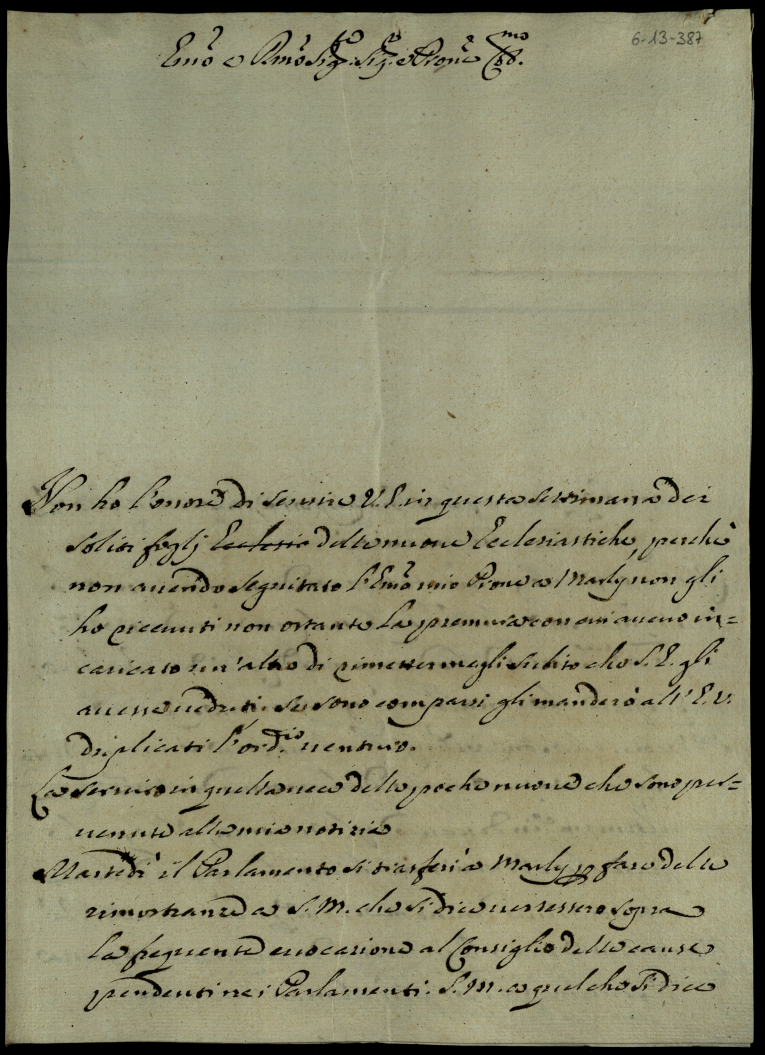 6-13-387
Emo e Rmo Sigre Sig. e Prone Colmo
Non ho l'onore di servire V. E. in questa settimana dei
soliti foglj Ecclesia delle nuove Ecclesiastiche, perchè
non avendo seguitato l'Emo mio Prone a Marly non gli
ho ricevuti non ostante la premura con cui avevo in=
caricato un'altro di rimettermegli subito che S. E. gli
avesse veduti. Se sono comparsi gli manderò all'E. V.
duplicati l'ord.rio venturo.
La serviro in quella vece delle poche nuove che sono per=
venute alla mia notizia
Martedi il Parlamento si trasferì a Marly p fare delle
rimostranze a S. M. che si dice versessero sopra
la frequente evocazione al Consiglio delle cause
pendenti nei Parlamenti. S. M. a quel che si dice